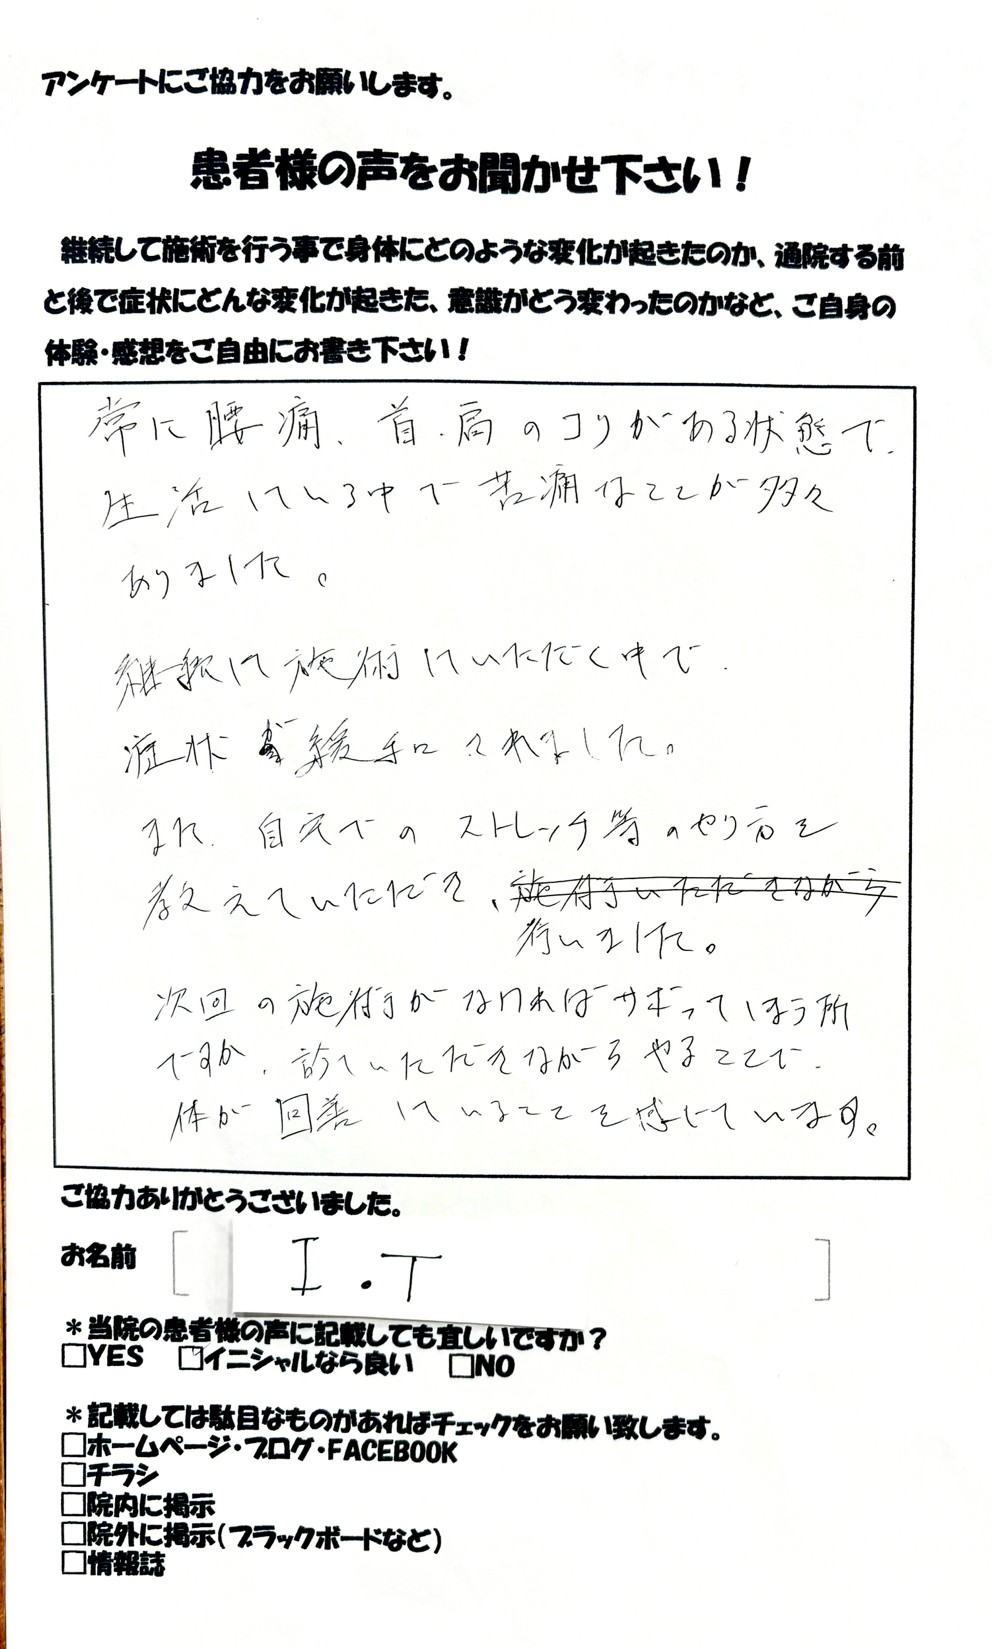 アンケートにご協力をお願いします。
患者様の声をお聞かせ下さい！
継続して施術を行う事で身体にどのような変化が起きたのか、通院する前
と後で症状にどんな変化が起きた、意識がどう変わったのかなど、ご自身の
体験・感想をご自由にお書き下さい！
常に腰痛、首・肩のコリがある状態で、
生活している中で苦痛なことが多々
ありました。
継続して施術していただく中で、
症状が緩和されました。
また、自宅でのストレッチ等のやり方を
教えていただき、施術していただきながら
行いました。
次回の施術がなければサボってしまう所
ですが、診ていただきながらやることで、
体が回善していることを感じています。
ご協力ありがとうございました。
お名前 [ I.T ]
＊当院の患者様の声に記載しても宜しいですか？
□YES ☑イニシャルなら良い □NO
＊記載しては駄目なものがあればチェックをお願い致します。
□ホームページ・ブログ・FACEBOOK
□チラシ
□院内に掲示
□院外に掲示（ブラックボードなど）
□情報誌